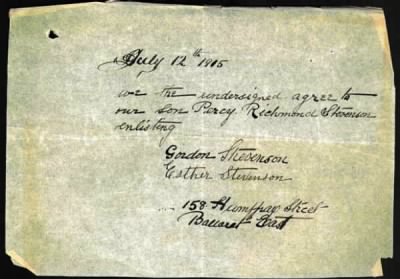 July 12th 1915
we the undersigned agree to
our son Percy Richmond Stevenson
enlisting
Gordon Stevenson
Esther Stevenson
158 Humffray Street
Ballarat East